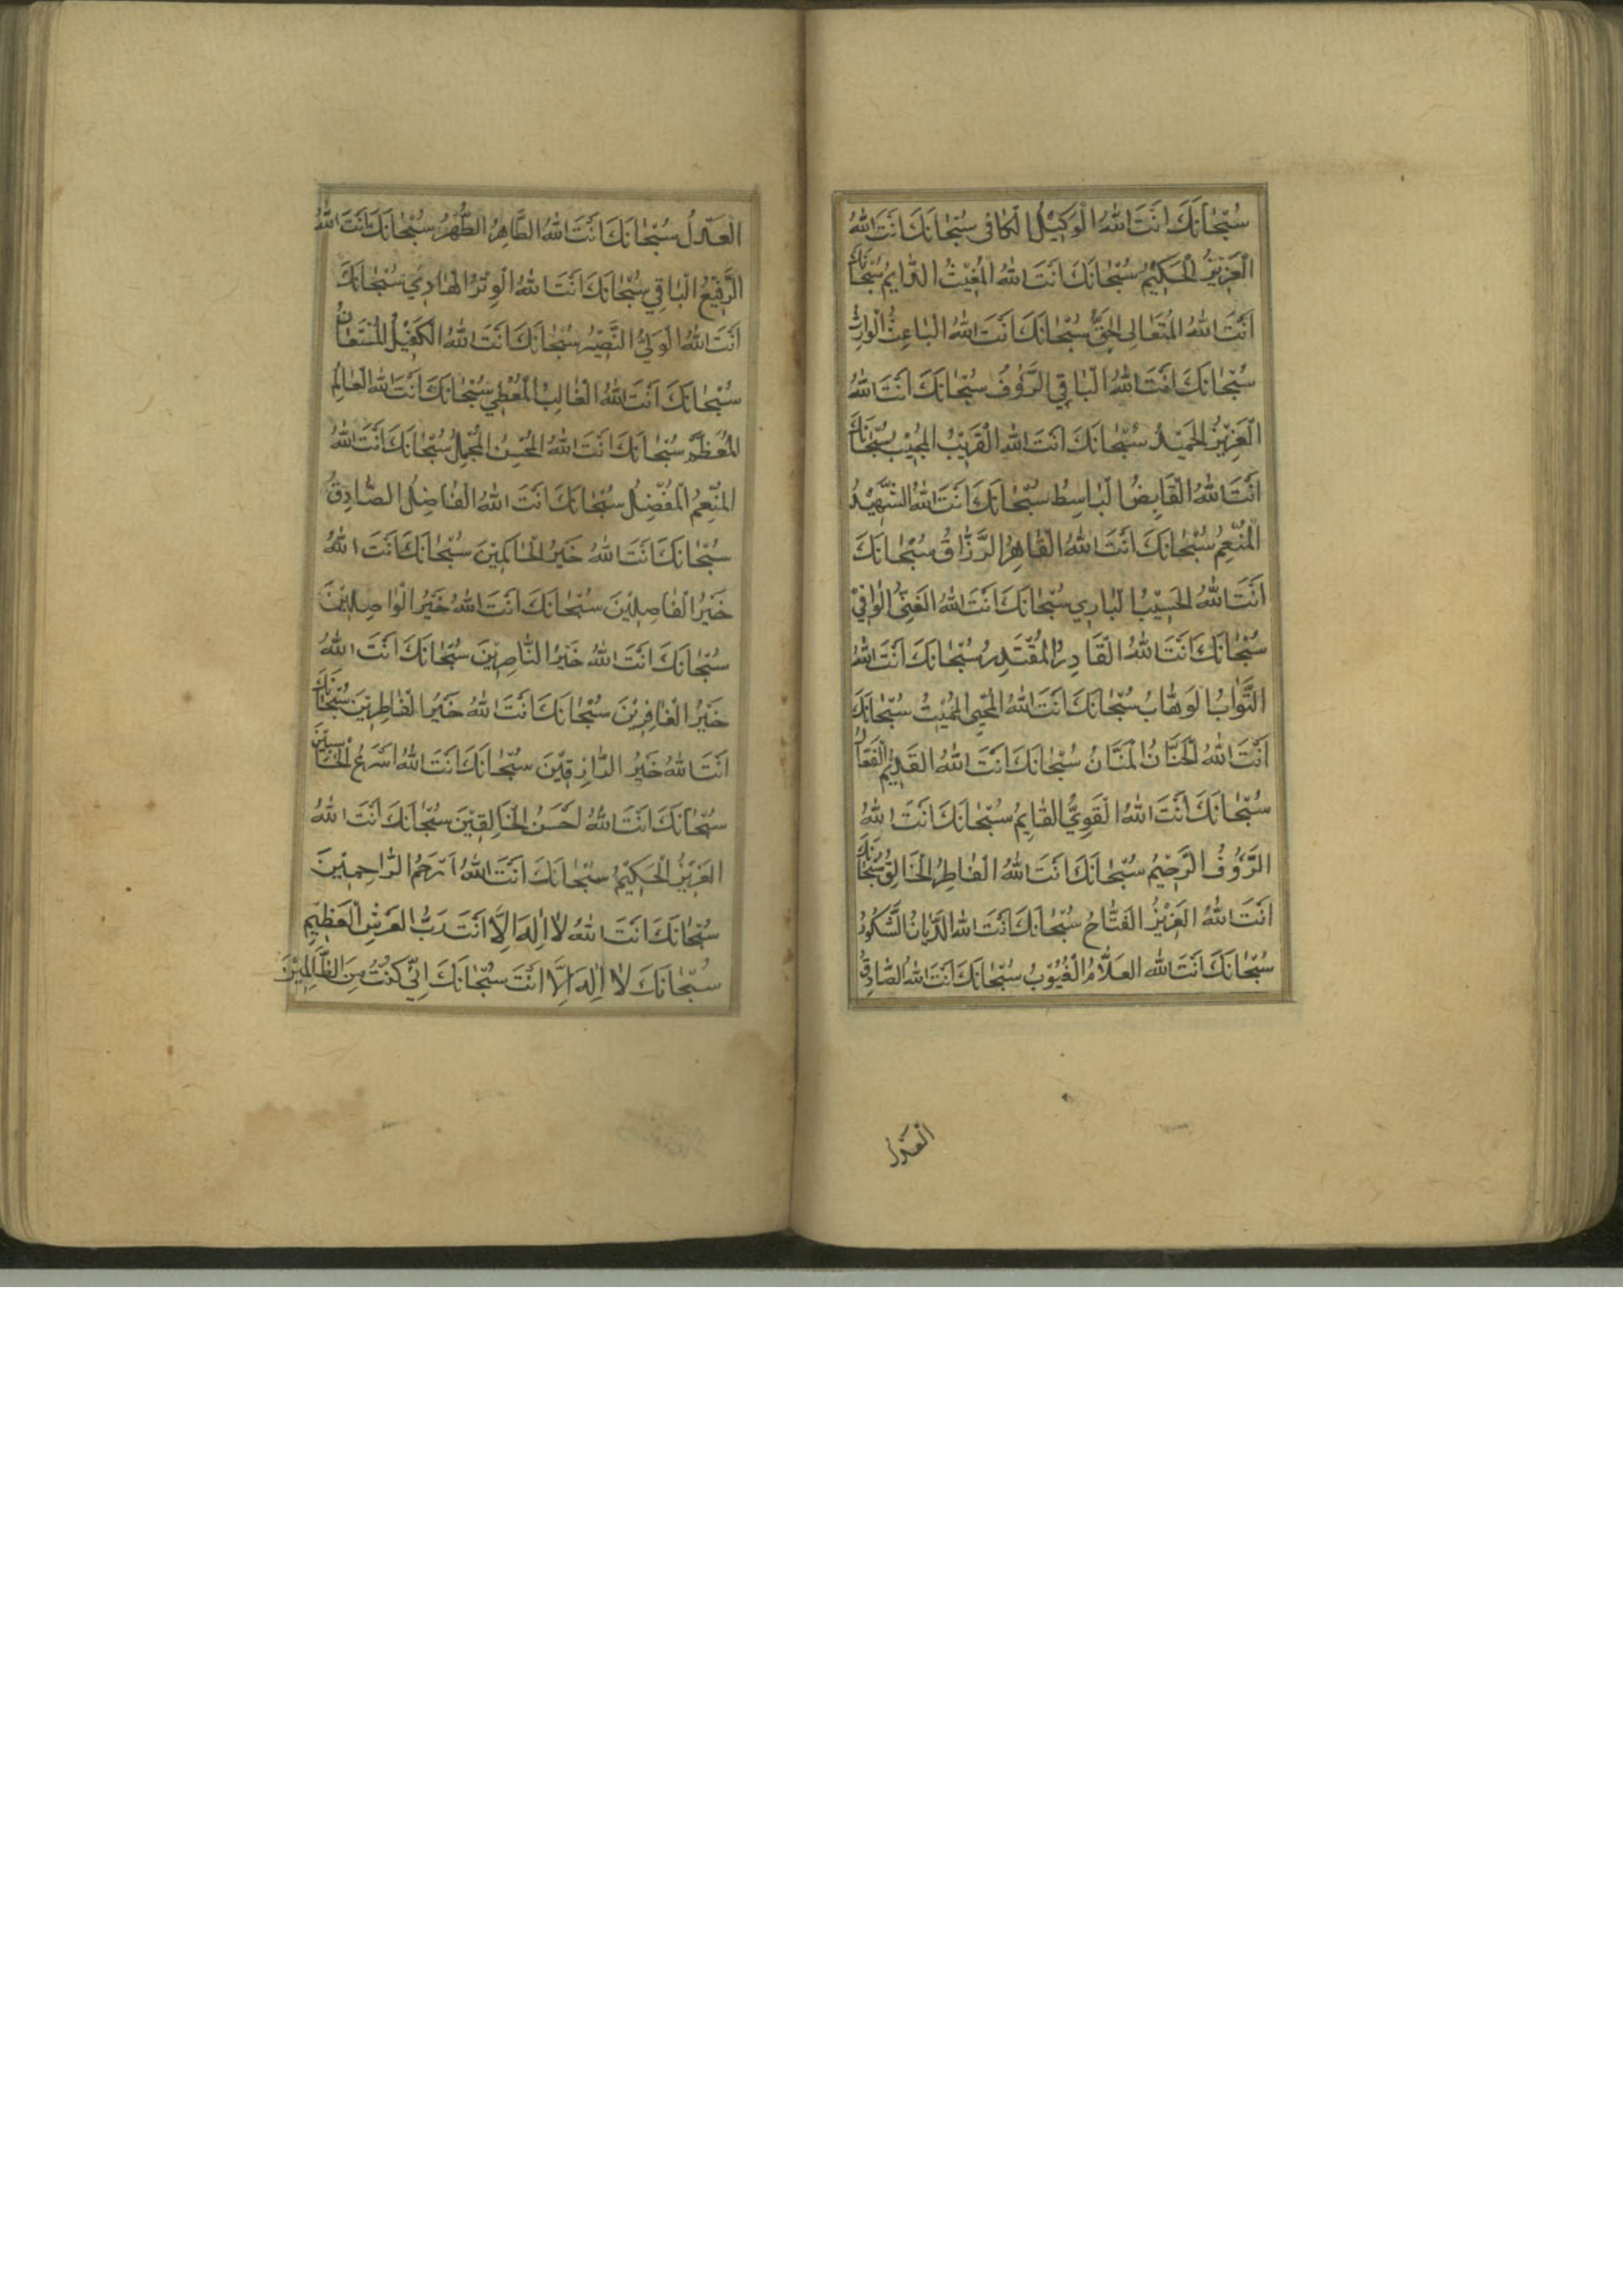 سُبْحَانَكَ اَنْتَ اللهُ الْوَكِيْلُ الْكَافِى سُبْحَانَكَ اَنْتَ اللهُ
الْعَزِيْزُ الْحَكِيْمُ سُبْحَانَكَ اَنْتَ اللهُ الْمُغِيْثُ الدَّايِمُ سُبْحَانَكَ
اَنْتَ اللهُ الْمُتَعَالِى الْحَقُّ سُبْحَانَكَ اَنْتَ اللهُ الْبَاعِثُ الْوَارِثُ
سُبْحَانَكَ اَنْتَ اللهُ الْبَاقِي الرَّؤُفُ سُبْحَانَكَ اَنْتَ اللهُ
الْعَزِيْزُ الْحَمِيْدُ سُبْحَانَكَ اَنْتَ اللهُ الْقَرِيْبُ الْمُجِيْبُ سُبْحَانَكَ
اَنْتَ اللهُ الْقَابِضُ الْبَاسِطُ سُبْحَانَكَ اَنْتَ اللهُ الشَّهِيْدُ
الْمُنْعِمُ سُبْحَانَكَ اَنْتَ اللهُ الْقَاهِرُ الرَّزَّاقُ سُبْحَانَكَ
اَنْتَ اللهُ الْحَسِيْبُ الْبَارِي سُبْحَانَكَ اَنْتَ اللهُ الْغَنِىُّ الْوَافِيْ
سُبْحَانَكَ اَنْتَ اللهُ الْقَادِرُ الْمُقْتَدِرُ سُبْحَانَكَ اَنْتَ اللهُ
التَّوَّابُ الْوَهَّابُ سُبْحَانَكَ اَنْتَ اللهُ الْمُحْيِى الْمُمِيْتُ سُبْحَانَكَ
اَنْتَ اللهُ الْحَنَّانُ الْمَنَّانُ سُبْحَانَكَ اَنْتَ اللهُ الْقَدِيْمُ الْفَعَّالُ
سُبْحَانَكَ اَنْتَ اللهُ الْقَوِيُّ الْقَايِمُ سُبْحَانَكَ اَنْتَ اللهُ
الرَّؤُفُ الرَّحِيْمُ سُبْحَانَكَ اَنْتَ اللهُ الْفَاطِرُ الْخَالِقُ سُبْحَانَكَ
اَنْتَ اللهُ الْعَزِيْزُ الْفَتَّاحُ سُبْحَانَكَ اَنْتَ اللهُ الدَّيَّانُ الشَّكُوْرُ
سُبْحَانَكَ اَنْتَ اللهُ الْعَلَّامُ الْغُيُوْبُ سُبْحَانَكَ اَنْتَ اللهُ الصَّادِقُ
الْعَدْلُ
الْعَدْلُ سُبْحَانَكَ اَنْتَ اللهُ الطَّاهِرُ الطُّهْرُ سُبْحَانَكَ اَنْتَ اللهُ
الرَّفِيْعُ الْبَاقِي سُبْحَانَكَ اَنْتَ اللهُ الْوِتْرُ الْهَادِيْ سُبْحَانَكَ
اَنْتَ اللهُ الْوَلِيُّ النَّصِيْرُ سُبْحَانَكَ اَنْتَ اللهُ الْكَفِيْلُ الْمُسْتَعَانُ
سُبْحَانَكَ اَنْتَ اللهُ الْغَالِبُ الْمُعْطِي سُبْحَانَكَ اَنْتَ اللهُ الْعَالِمُ
الْمُعَظَّمُ سُبْحَانَكَ اَنْتَ اللهُ الْمُحْسِنُ الْمُجْمِلُ سُبْحَانَكَ اَنْتَ اللهُ
الْمُنْعِمُ الْمُفَضِّلُ سُبْحَانَكَ اَنْتَ اللهُ الْفَاضِلُ الصَّادِقُ
سُبْحَانَكَ اَنْتَ اللهُ خَيْرُ الْحَاكِمِيْنَ سُبْحَانَكَ اَنْتَ اللهُ
خَيْرُ الْفَاصِلِيْنَ سُبْحَانَكَ اَنْتَ اللهُ خَيْرُ الْوَاصِلِيْنَ
سُبْحَانَكَ اَنْتَ اللهُ خَيْرُ النَّاصِرِيْنَ سُبْحَانَكَ اَنْتَ اللهُ
خَيْرُ الْغَافِرِيْنَ سُبْحَانَكَ اَنْتَ اللهُ خَيْرُ الْفَاطِرِيْنَ سُبْحَانَكَ
اَنْتَ اللهُ خَيْرُ الرَّازِقِيْنَ سُبْحَانَكَ اَنْتَ اللهُ اَسْرَعُ الْحَاسِبِيْنَ
سُبْحَانَكَ اَنْتَ اللهُ اَحْسَنُ الْخَالِقِيْنَ سُبْحَانَكَ اَنْتَ اللهُ
الْعَزِيْزُ الْحَكِيْمُ سُبْحَانَكَ اَنْتَ اللهُ اَرْحَمُ الرَّاحِمِيْنَ
سُبْحَانَكَ اَنْتَ اللهُ لَا اِلٰهَ اِلَّا اَنْتَ رَبُّ الْعَرْشِ الْعَظِيْمِ
سُبْحَانَكَ لَا اِلٰهَ اِلَّا اَنْتَ سُبْحَانَكَ اِنِّي كُنْتُ مِنَ الظَّالِمِيْنَ